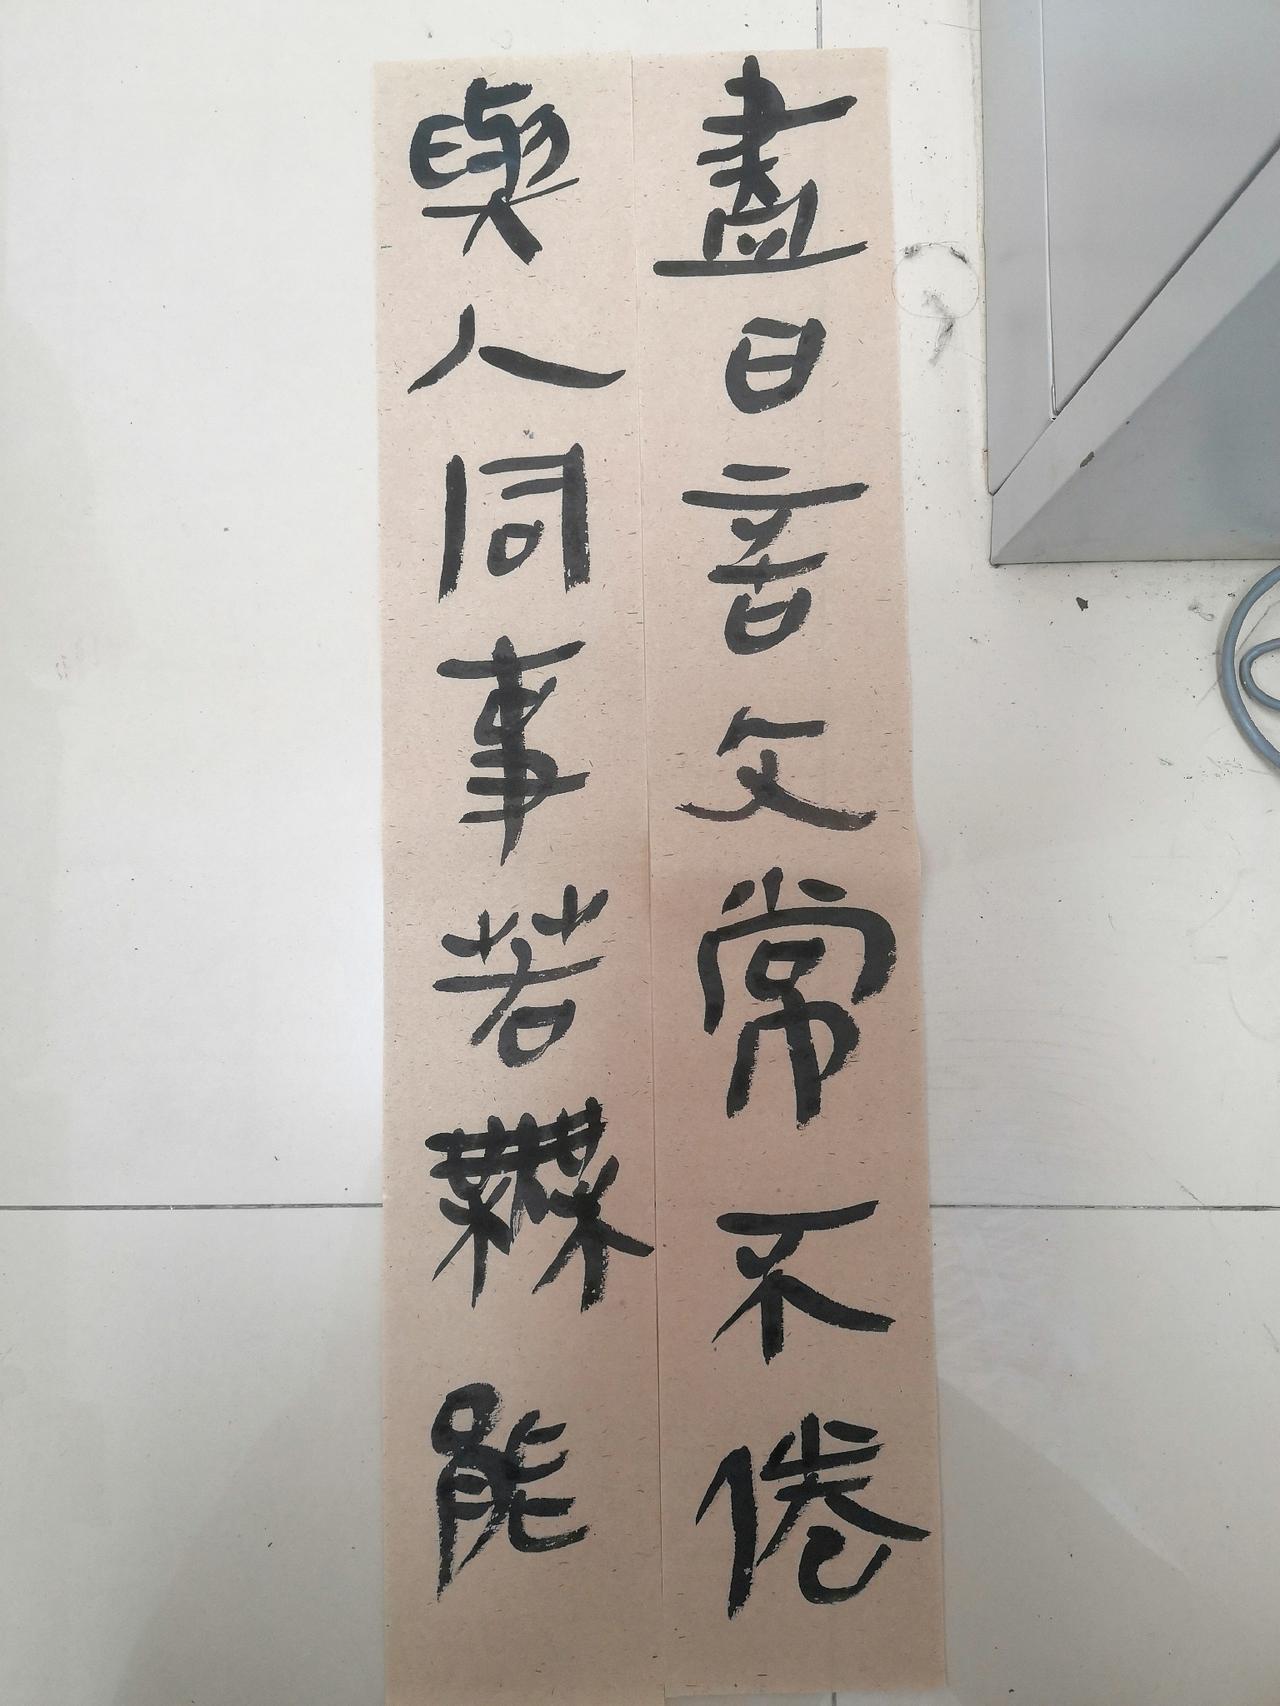 盡日言文常不倦
與人同事若無能